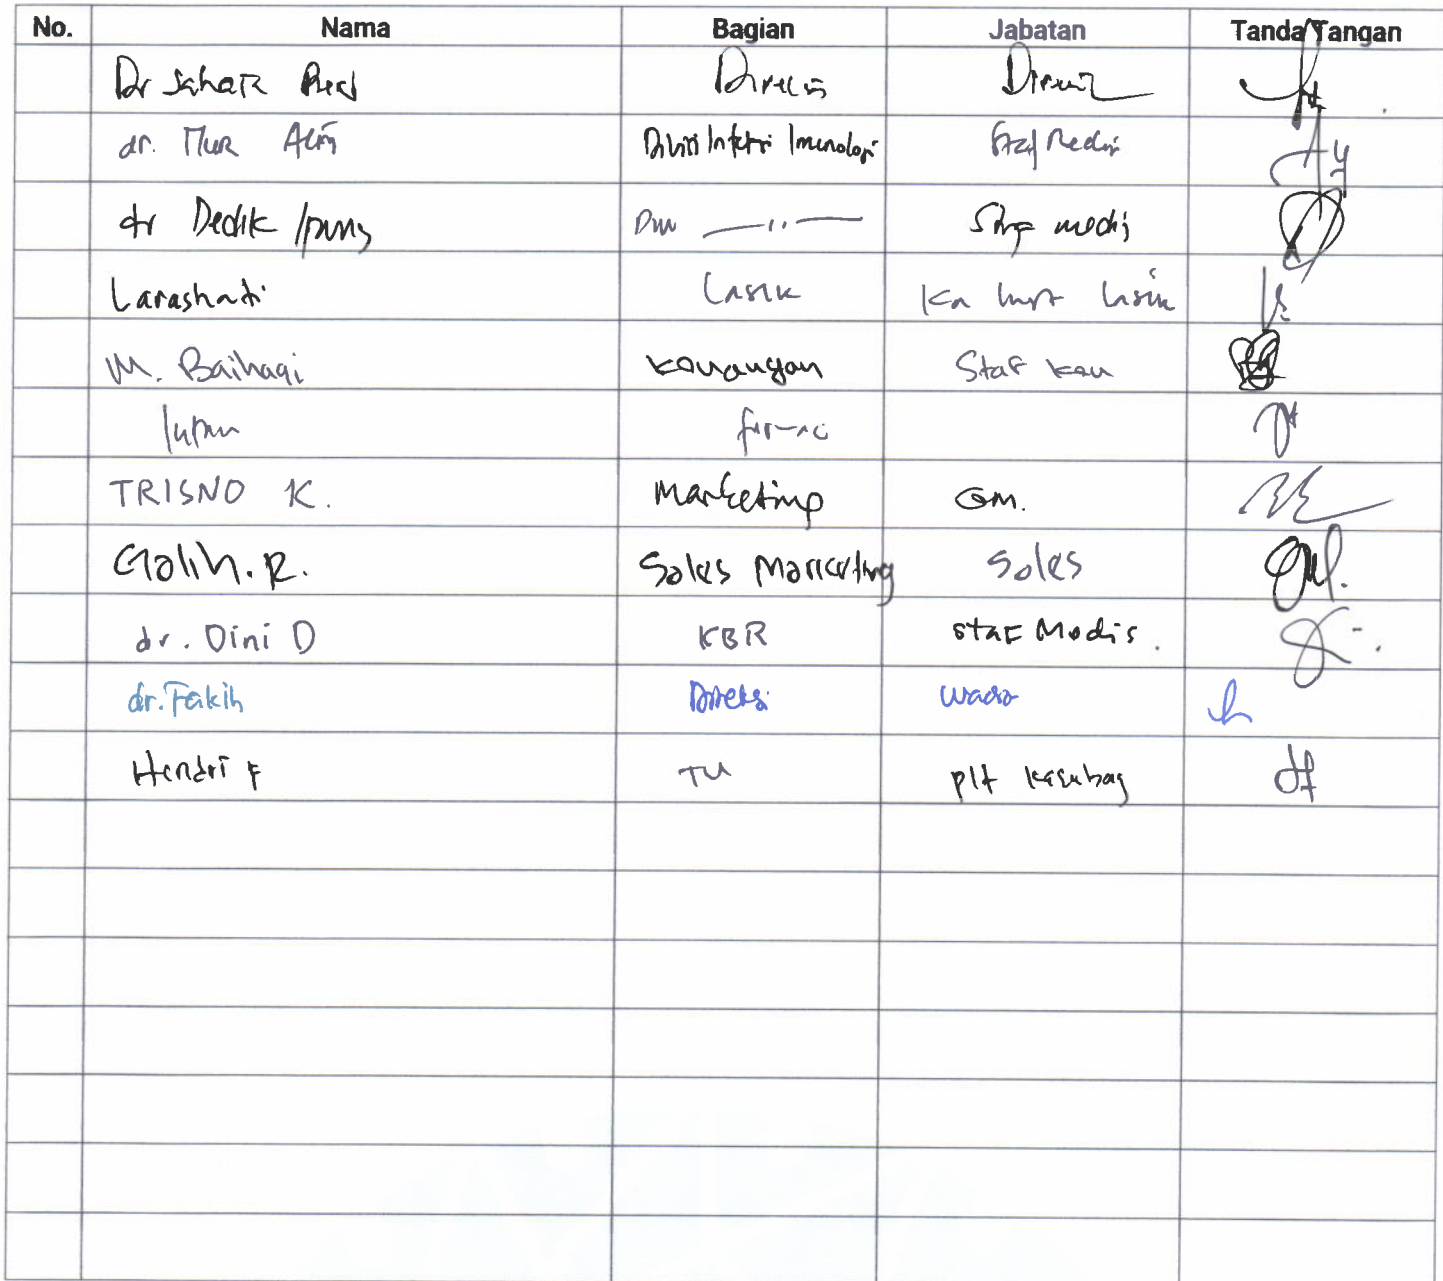 No. Nama Bagian Jabatan Tanda Tangan
Dr Direksi
dr. Nur Divisi Infeksi Imunologi Staf Medis
dr Dedik Div —〃— Staf medis
Larashati Lasik Ka Lasik
M. Baihaqi Keuangan Staf keu
TRISNO K. Marketing GM.
Galih. R. Sales Marketing Sales
dr. Dini D KBR Staf Medis.
dr. Fakih Direksi
Hendri F TU plt Kasubag